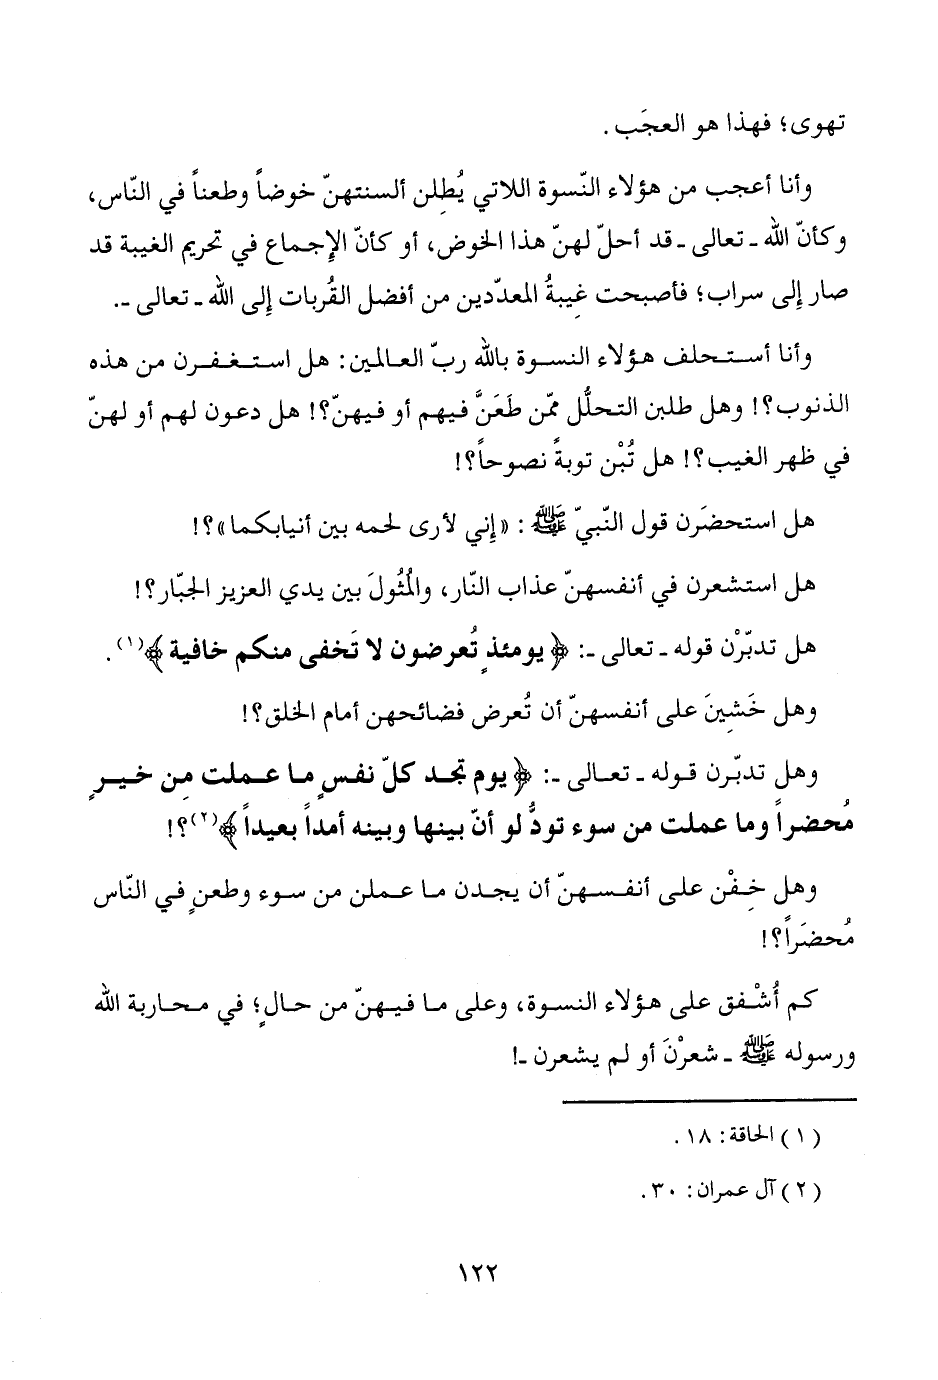 تهوى؛ فهذا هو العجَب.
وأنا أعجب من هؤلاء النّسوة اللاتي يُطِلن ألسنتهنّ خوضاً وطعناً في النّاس،
وكأنّ الله ـ تعالى ـ قد أحلّ لهنّ هذا الخوض، أو كأنّ الإجماع في تحريم الغيبة قد
صار إلى سراب؛ فأصبحت غِيبةُ المعدّدين من أفضل القُربات إلى الله ـ تعالى ـ.
وأنا أستحلف هؤلاء النسوة بالله ربّ العالمين: هل استغفرن من هذه
الذنوب؟! وهل طلبن التحلُّل ممّن طَعَنَّ فيهم أو فيهنّ؟! هل دعون لهم أو لهنّ
في ظهر الغيب؟! هل تُبْن توبةً نصوحاً؟!
هل استحضَرن قول النّبيّ ﷺ: «إني لأرى لحمه بين أنيابكما»؟!
هل استشعرن في أنفسهنّ عذاب النّار، والمُثُولَ بين يدي العزيز الجبّار؟!
هل تدبّرْن قوله ـ تعالى ـ: ﴿يومئذٍ تُعرضون لا تَخفى منكم خافية﴾(١).
وهل خَشِينَ على أنفسهنّ أن تُعرض فضائحهن أمام الخلق؟!
وهل تدبّرن قوله ـ تعالى ـ: ﴿يوم تجد كلّ نفسٍ ما عملت مِن خيرٍ
مُحضراً وما عملت من سوء تودُّ لو أنّ بينها وبينه أمداً بعيداً﴾(٢)؟!
وهل خِفْن على أنفسهنّ أن يجدن ما عملن من سوء وطعنٍ في النّاس
مُحضَراً؟!
كم أُشْفق على هؤلاء النسوة، وعلى ما فيهنّ من حالٍ؛ في محاربة الله
ورسوله ﷺ ـ شعرْنَ أو لم يشعرن ـ!
(١) الحاقة: ١٨.
(٢) آل عمران: ٣٠.
١٢٢